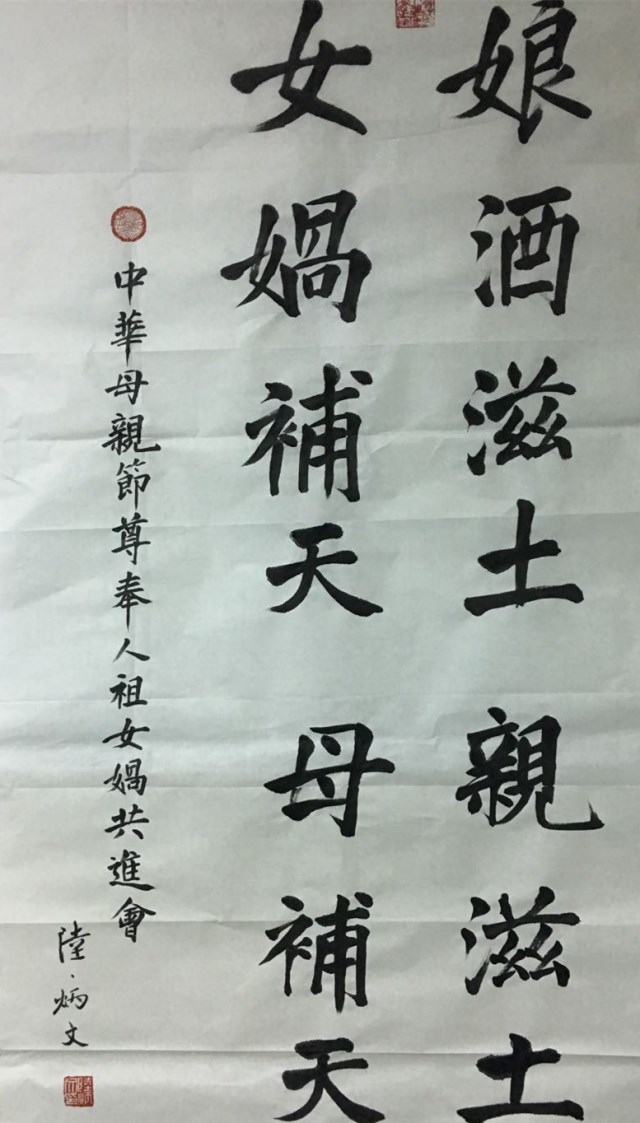 娘酒滋土 親滋土
女媧補天 母補天
中華母親節尊奉人祖女媧共進會
陸·炳文